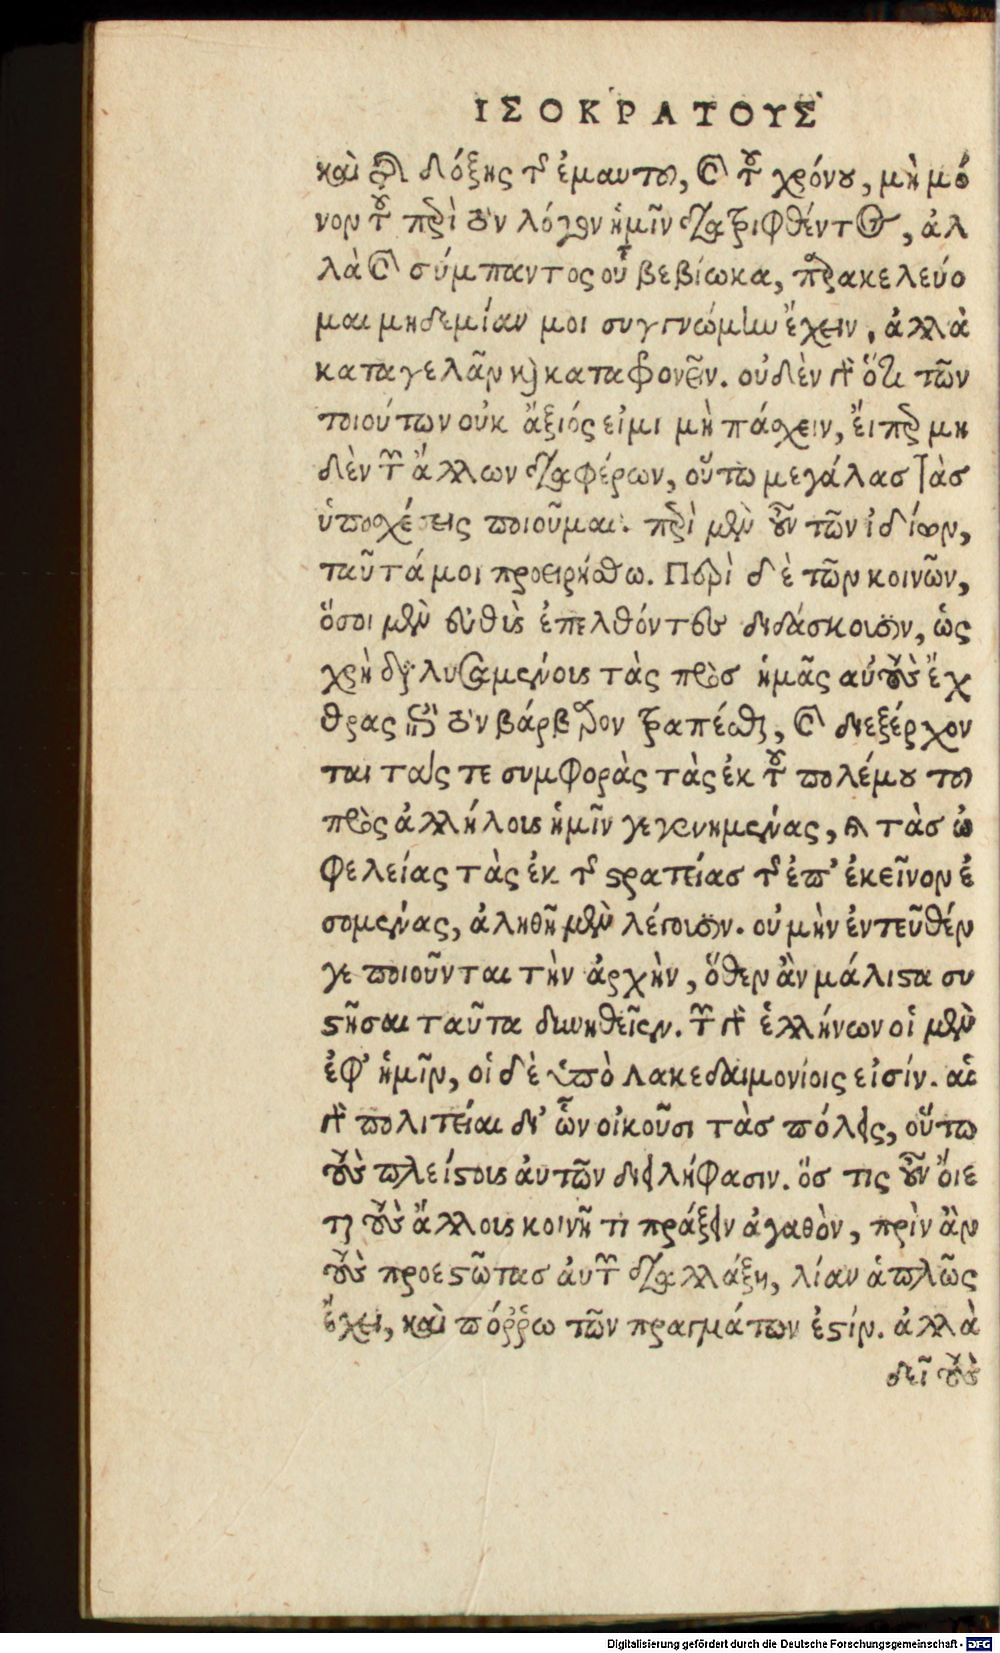 ΙΣΟΚΡΑΤΟΥΣ
καὶ τῆς δόξης τῆς ἐμαυτοῦ, καὶ τοῦ χρόνου, μὴ μό
νον τοῦ περὶ τὸν λόγον ἡμῖν διατριφθέντος, ἀλ
λὰ καὶ σύμπαντος οὗ βεβίωκα, παρακελεύο
μαι μηδεμίαν μοι συγγνώμην ἔχειν, ἀλλὰ
καταγελᾶν καὶ καταφρονεῖν. οὐδὲν γὰρ ὅτι τῶν
τοιούτων οὐκ ἄξιός εἰμι μὴ πάσχειν, ἔιπερ μη
δὲν τῶν ἄλλων διαφέρων, οὕτω μεγάλας τὰς
ὑποσχέσεις ποιοῦμαι. περὶ μὲν οὖν τῶν ἰδίων,
ταῦτά μοι προειρήσθω. Περὶ δὲ τῶν κοινῶν,
ὅσοι μὲν εὐθὺς ἐπελθόντες διδάσκουσιν, ὡς
χρὴ διαλυσαμένους τὰς πρὸς ἡμᾶς αὐτοὺς ἔχ
θρας ἐπὶ τὸν βάρβαρον τραπέσθαι, καὶ διεξέρχον
ται τάς τε συμφορὰς τὰς ἐκ τοῦ πολέμου τοῦ
πρὸς ἀλλήλους ἡμῖν γεγενημένας, καὶ τὰς ὠ
φελείας τὰς ἐκ τῆς στρατείας τῆς ἐπ' ἐκεῖνον ἐ
σομένας, ἀληθῆ μὲν λέγουσιν. οὐ μὴν ἐντεῦθέν
γε ποιοῦνται τὴν ἀρχὴν, ὅθεν ἂν μάλιστα συ
στῆσαι ταῦτα δυνηθεῖεν. τῶν γὰρ ἑλλήνων οἱ μὲν
ἐφ' ἡμῖν, οἱ δὲ ὑπὸ λακεδαιμονίοις εἰσίν. αἱ
γὰρ πολιτεῖαι δι' ὧν οἰκοῦσι τὰς πόλεις, οὕτω
τοὺς πλείστους ἀυτῶν διειλήφασιν. ὅς τις οὖν ὄιε
ται τοὺς ἄλλους κοινῇ τι πράξειν ἀγαθὸν, πρὶν ἂν
τοὺς προεστῶτας ἀυτῶν διαλλάξῃ, λίαν ἁπλῶς
ἔχει, καὶ πόῤῥω τῶν πραγμάτων ἐστίν. ἀλλὰ
δεῖ τοὺς
Digitalisierung gefördert durch die Deutsche Forschungsgemeinschaft - DFG